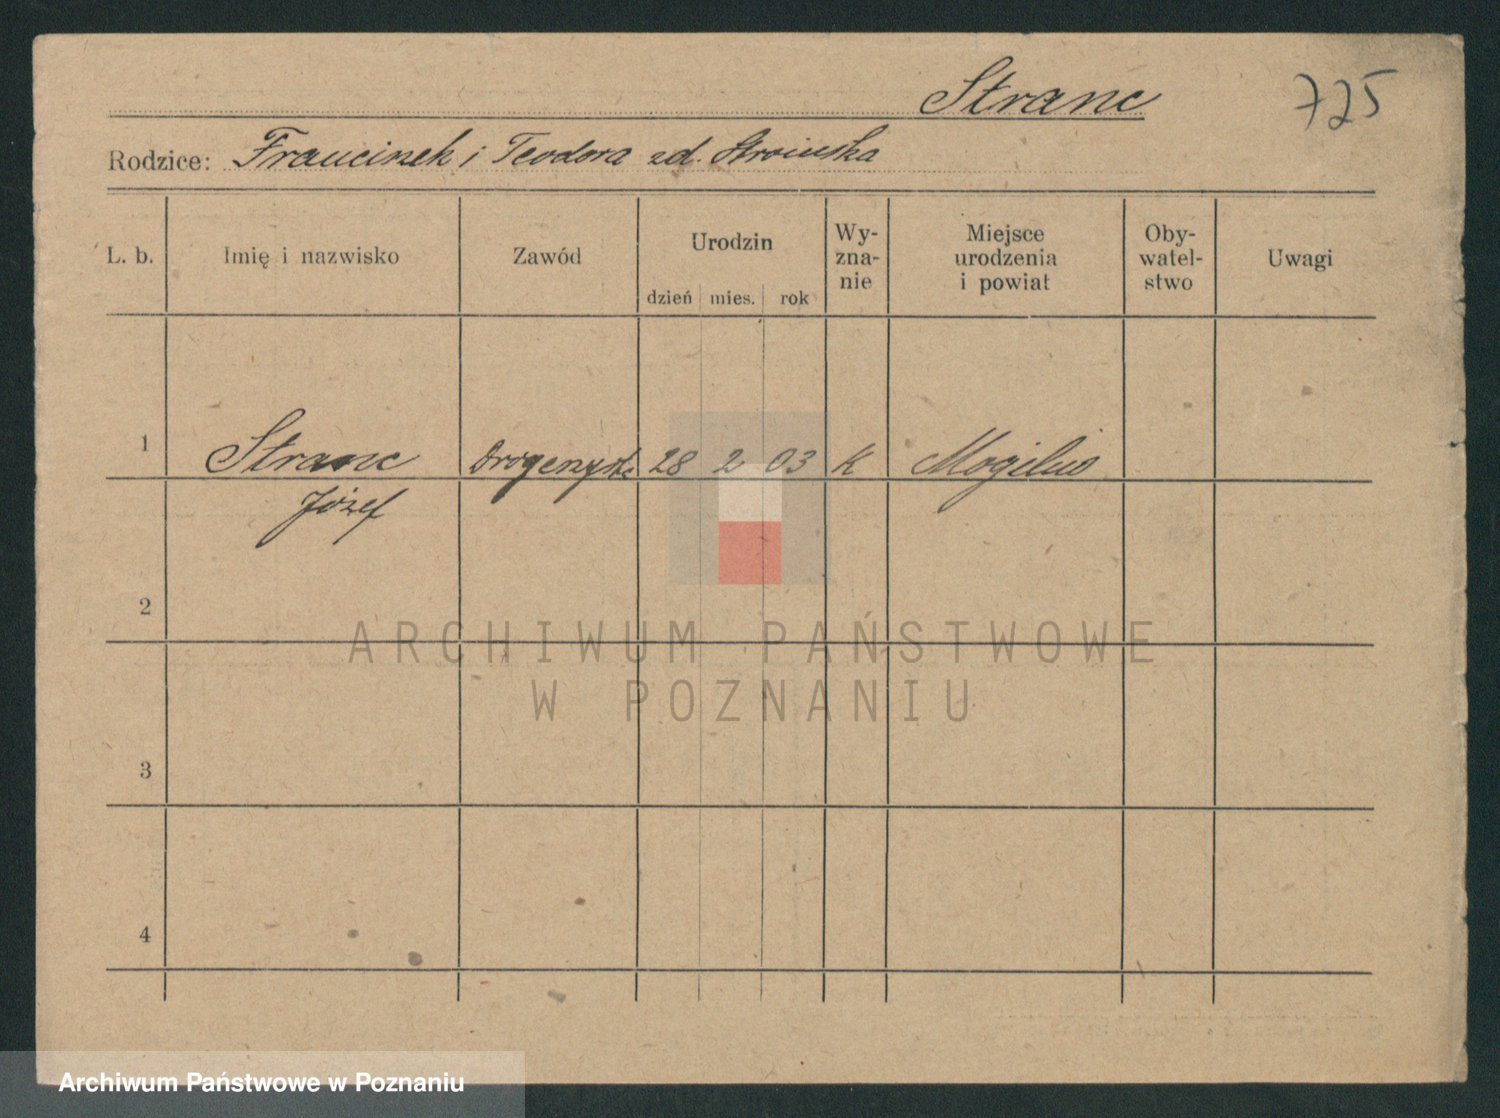 Stranc
725
Rodzice: Franciszek i Teodora zd.
L. b. Imię i nazwisko Zawód Urodzin dzień mies. rok Wy-zna-nie Miejsce urodzenia i powiat Oby-watel-stwo Uwagi
1 Stranc 28 2 03 K Mogilno
Józef
2
ARCHIWUM PAŃSTWOWE
W POZNANIU
3
4
Archiwum Państwowe w Poznaniu